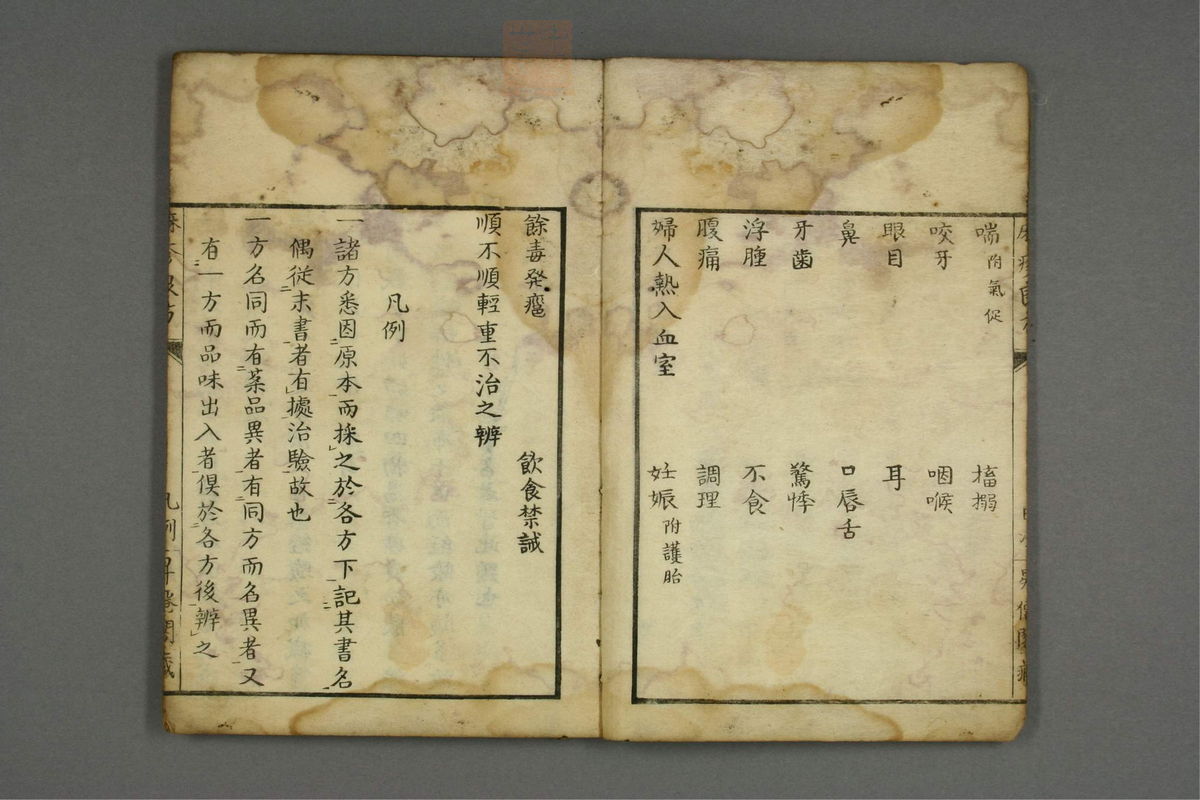 喘附氣促 搐搦
咬牙 咽喉
眼目 耳
鼻 口唇舌
牙齒 驚悸
浮腫 不食
腹痛 調理
婦人熱入血室 妊娠附護胎
餘毒発癰 飲食禁誡
順不順輕重不治之辨
凡例
一諸方悉因原本而採之於各方下記其書名
偶從末書者有據治驗故也
一方名同而有薬品異者有同方而名異者又
有一方而品味出入者俱於各方後辨之
凡例